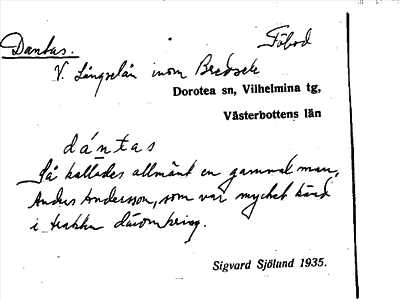 Dantas. Fäbod
V. Långselån inom Bredsele
Dorotea sn, Vilhelmina tg,
Västerbottens län
dántas
Så kallades allmänt en gammal man,
Anders Andersson, som var mycket känd
i trakten däromkring.
Sigvard Sjölund 1935.